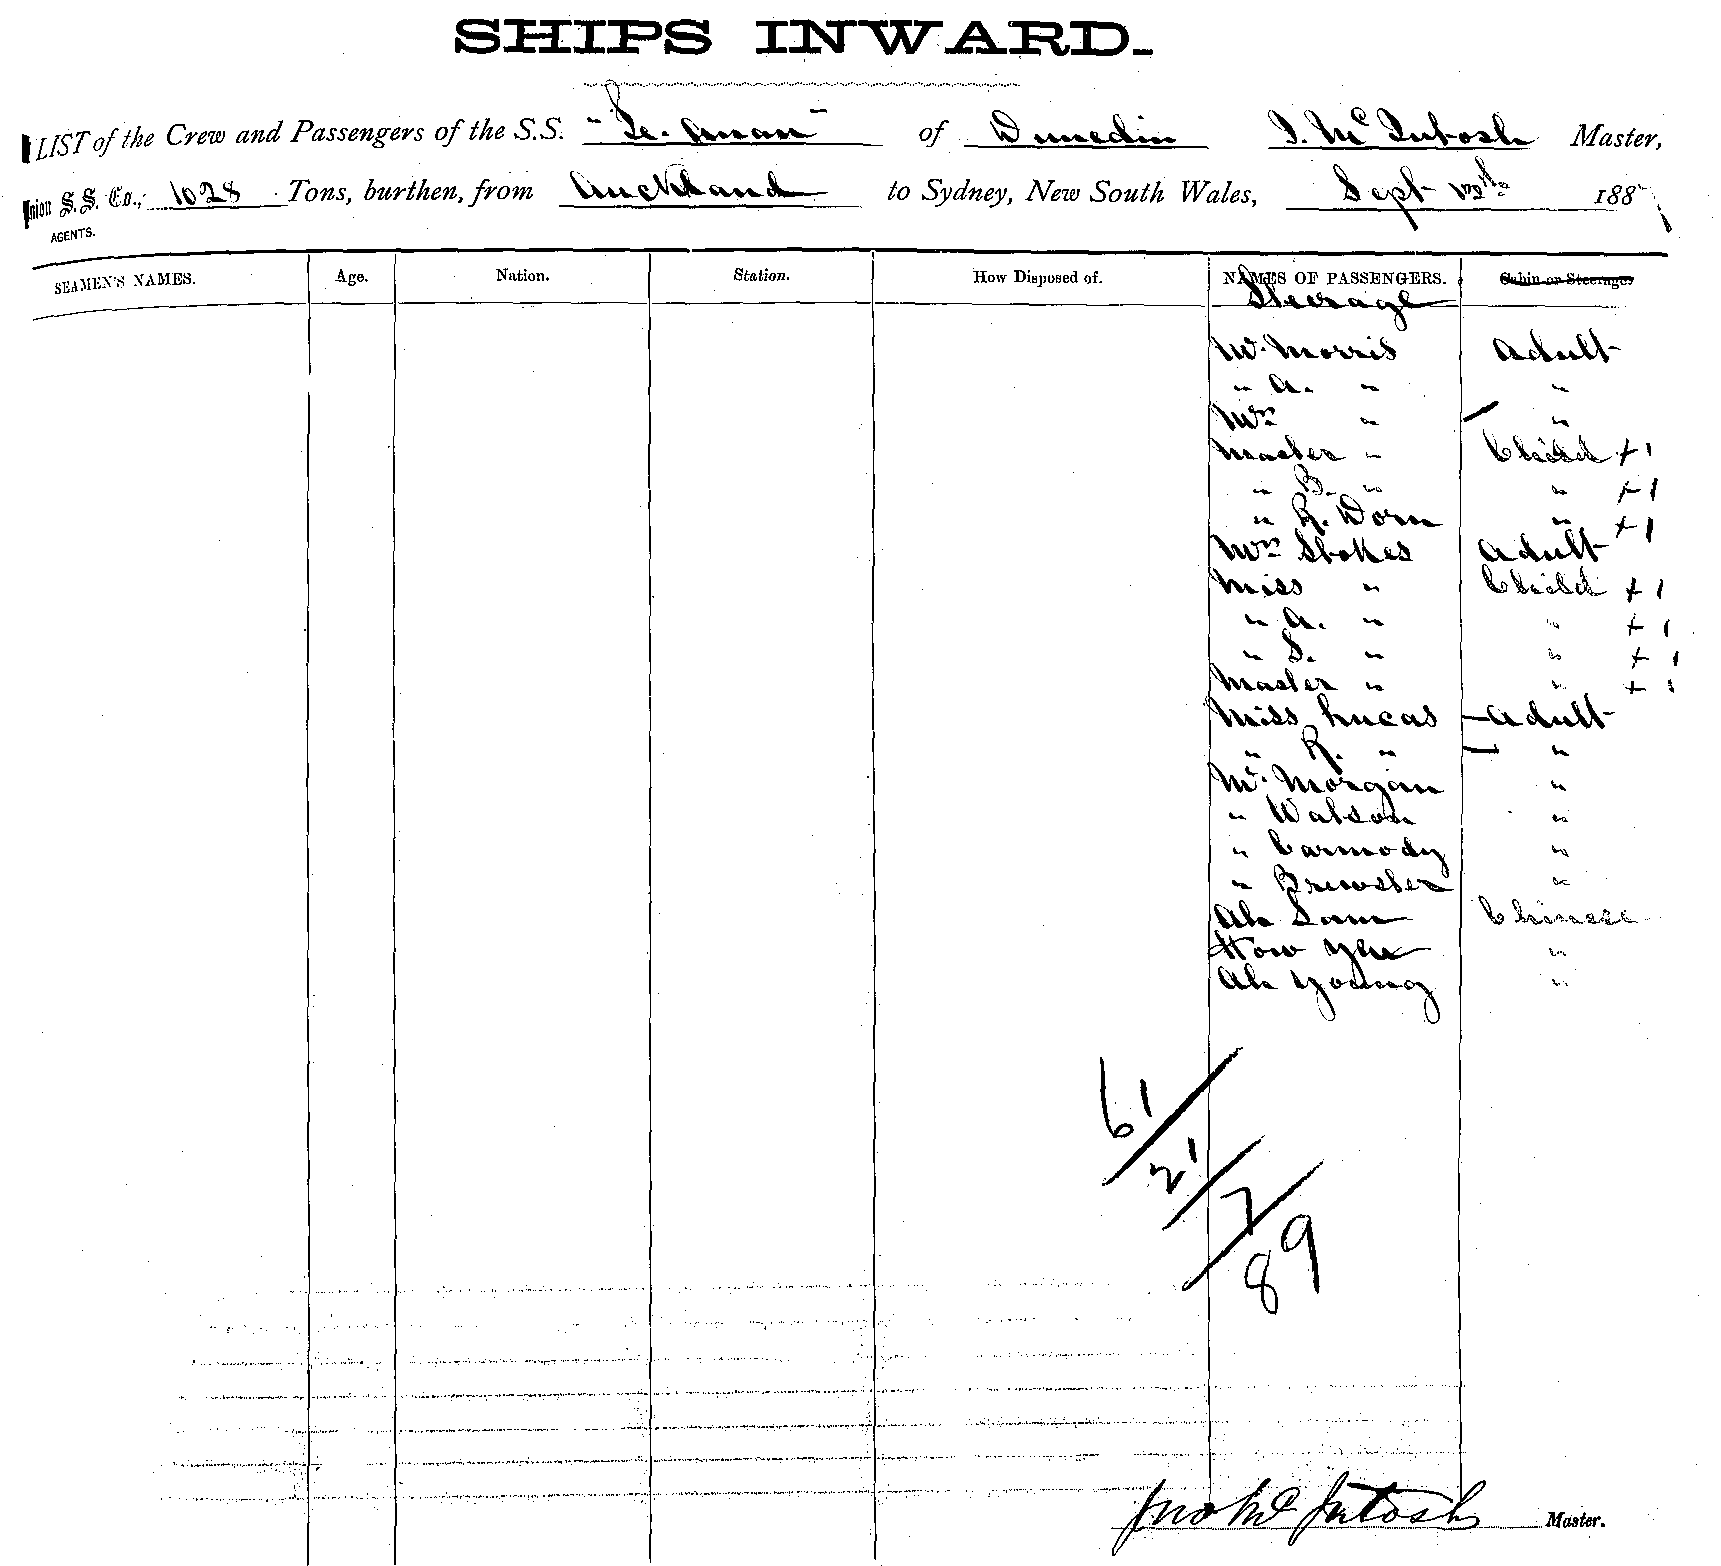 SHIPS INWARD.
LIST of the Crew and Passengers of the S.S. "Te. Anau" of Dunedin J. McIntosh Master,
Union S.S. Co., 1028 Tons, burthen, from Auckland to Sydney, New South Wales, Sept 12th 1887
AGENTS.
SEAMEN'S NAMES. Age. Nation. Station. How Disposed of. NAMES OF PASSENGERS. Cabin or Steerage
Steerage
Mr. Morris Adult
" A. " "
Mrs " "
Master " Child +1
" B. " " +1
" R. Dorn " +1
Mrs Stokes Adult
Miss " Child +1
" A. " " +1
" S. " " +1
Master " " +1
Miss Lucas Adult
" R. " "
Mr. Morgan "
" Watson "
" Carmody "
" Brewster "
Ah Sam Chinese
How Yee "
Ah Young "
61/21/7/89
Jno McIntosh Master.